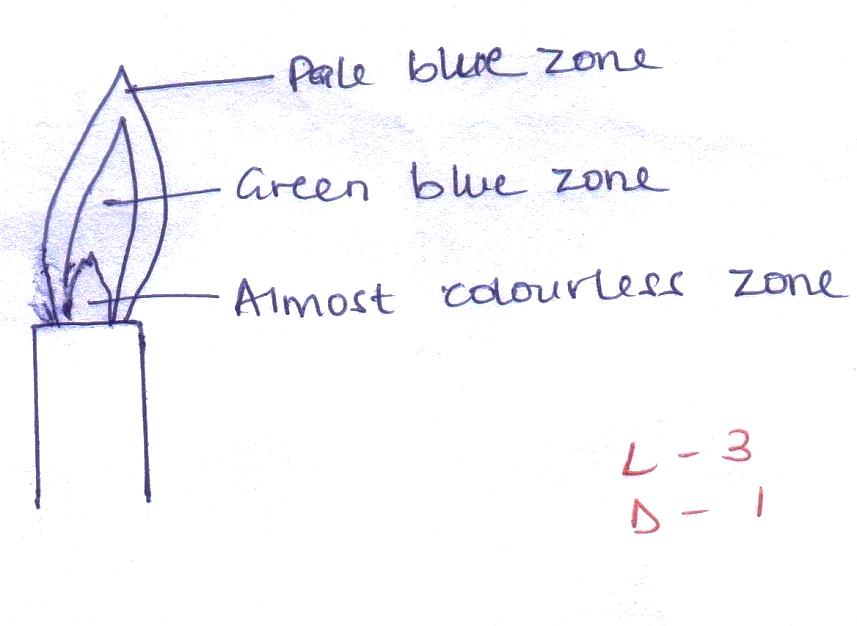 Pale blue zone
Green blue zone
Almost colourless zone
L - 3
D - 1